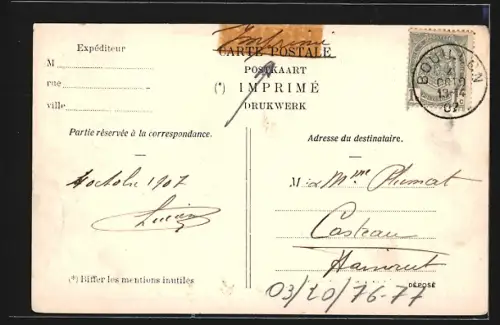 Imprimé
CARTE POSTALE
POSTKAART
(*) IMPRIMÉ
DRUKWERK
Expéditeur
M
rue
ville
BOUILLON
13-14
07
Partie réservée à la correspondance.
Adresse du destinataire.
4 octobre 1907
Lucien
M à Mme Plumat
Casteau
Hainaut
03/20/76-77
(*) Biffer les mentions inutiles
DÉPOSÉ